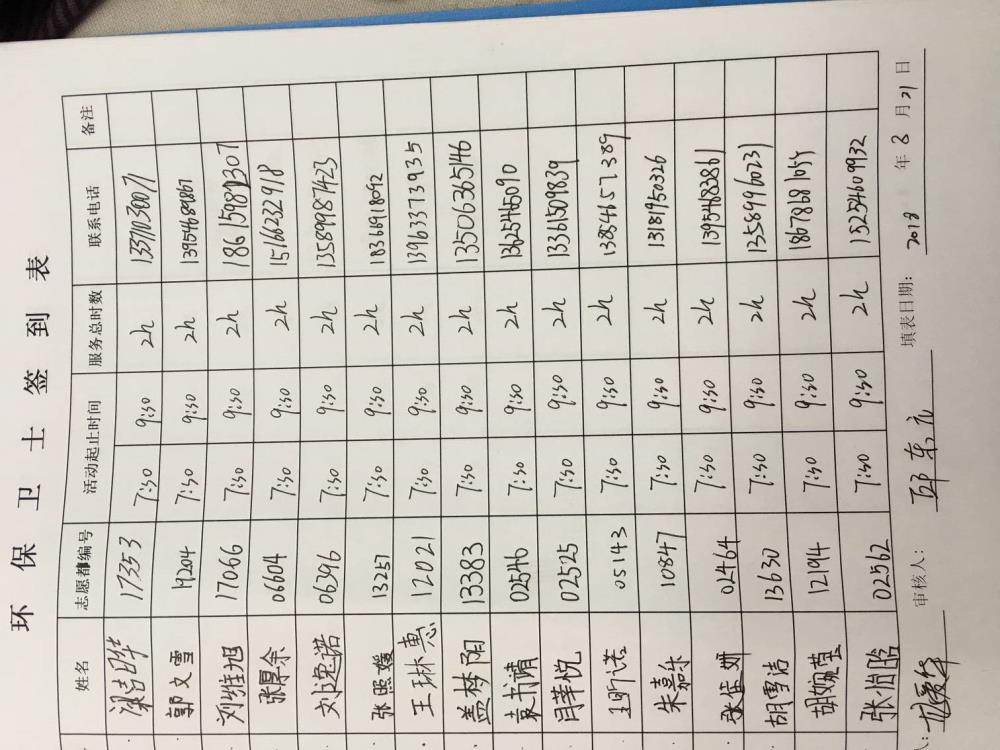 环保卫士签到表
姓名 志愿者编号 活动起止时间 服务总时数 联系电话 备注
17353 7:30 9:30 2h 13371030071
郭文雪 19204 7:30 9:30 2h 13954689867
17066 7:30 9:30 2h
张厚余 06604 7:30 9:30 2h 15166232918
刘逸诺 06396 7:30 9:30 2h 13589987423
张照媛 13257 7:30 9:30 2h 18366918092
王琳惠 12021 7:30 9:30 2h 13963373935
盖梦阳 13383 7:30 9:30 2h 13506365146
袁书清 02546 7:30 9:30 2h 13625465090
闫莘悦 02525 7:30 9:30 2h 13361509839
王昕诺 05143 7:30 9:30 2h 13854657389
朱嘉乐 10847 7:30 9:30 2h 13181950326
张佳妍 02464 7:30 9:30 2h 13954683861
胡雪洁 13630 7:30 9:30 2h 13589960231
胡婉莹 12194 7:30 9:30 2h 18678681055
张怡晗 02562 7:30 9:30 2h 15254609932
审核人: 邱东元 填表日期: 2018 年 8 月 21 日